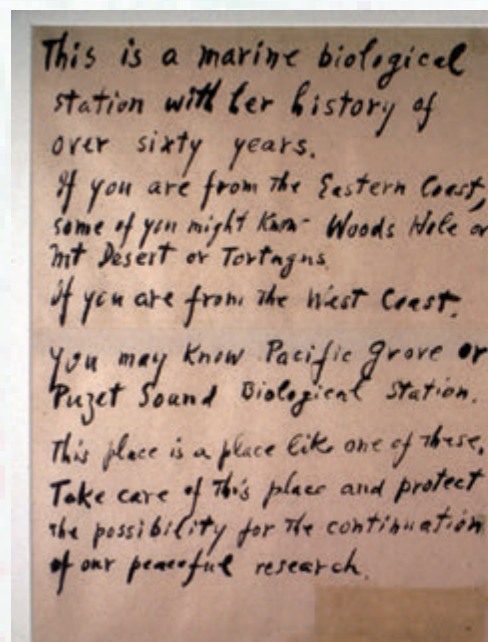 This is a marine biological
station with her history of
over sixty years.
If you are from the Eastern Coast,
some of you might know Woods Hole or
Mt Desert or Tortugas.
If you are from the West Coast,
you may know Pacific Grove or
Puget Sound Biological Station.
This place is a place like one of these.
Take care of this place and protect
the possibility for the continuation
of our peaceful research.